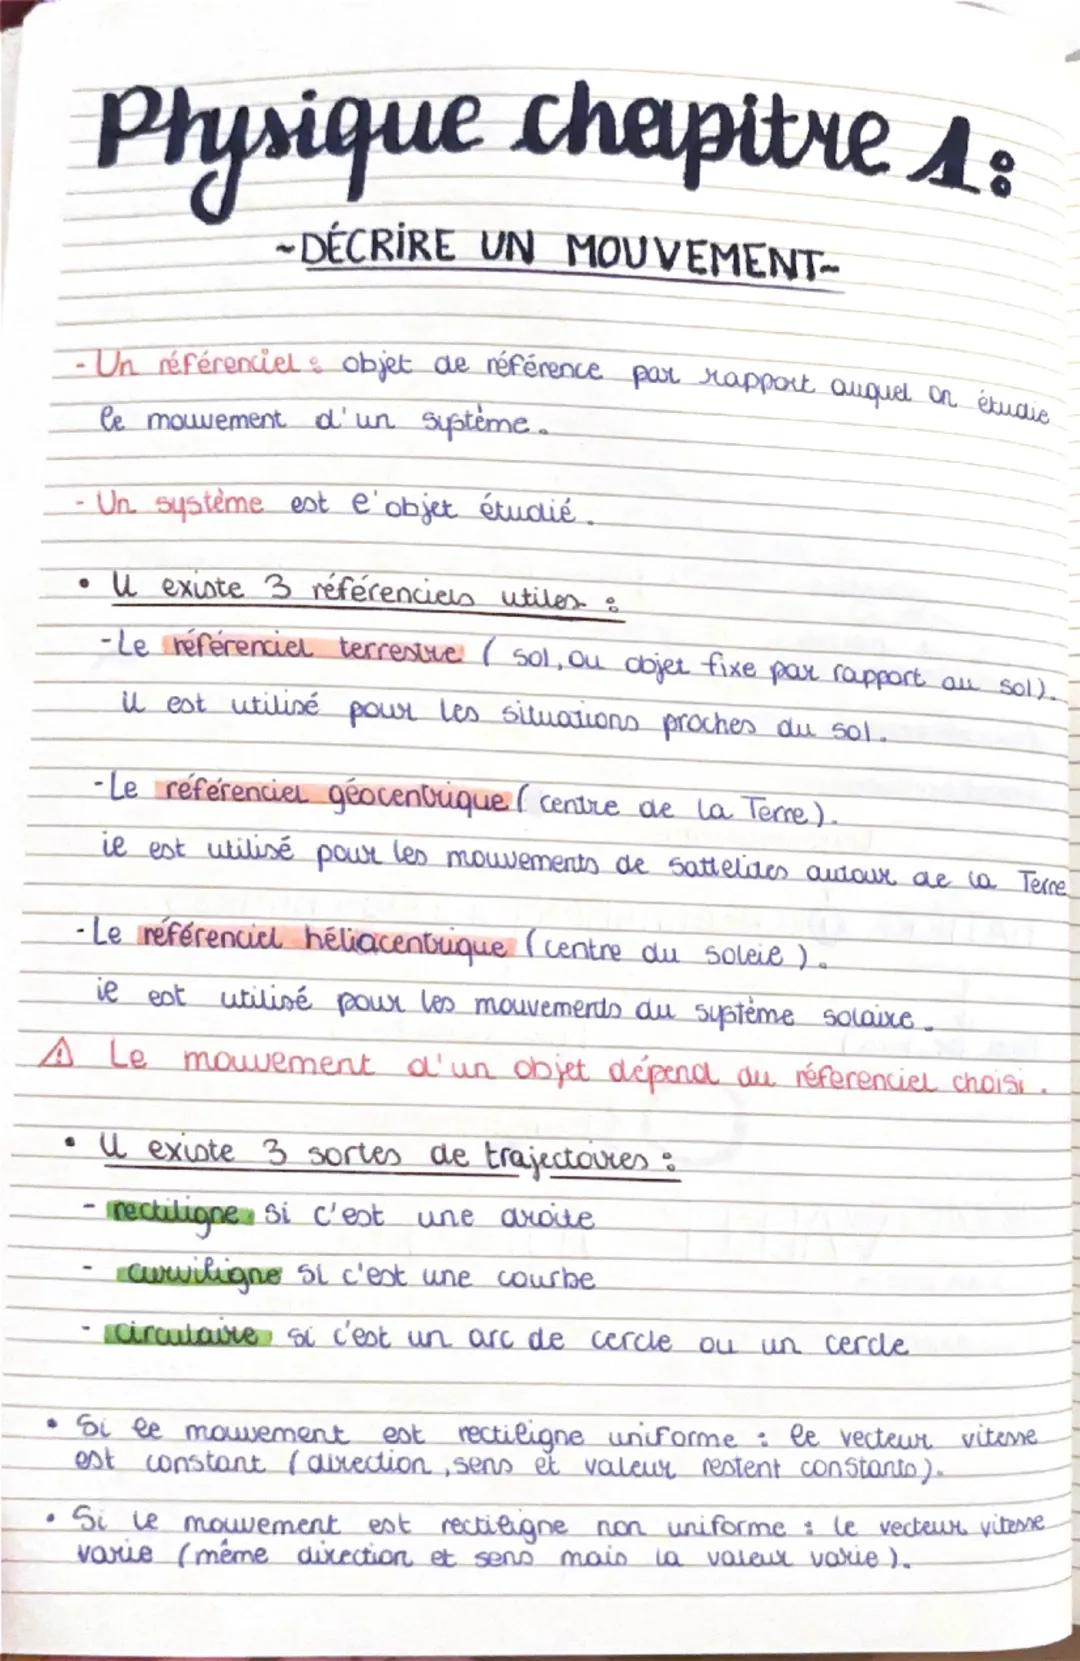 Physique chapitre 1:
~DÉCRIRE UN MOUVEMENT~
- Un référenciel : objet de référence par rapport auquel on étudie
le mouvement d'un système.
- Un système est l'objet étudié.
• Il existe 3 référenciels utiles :
- Le référenciel terrestre ( sol, ou objet fixe par rapport au sol).
il est utilisé pour les situations proches du sol.
- Le référenciel géocentrique ( centre de la Terre).
il est utilisé pour les mouvements de sattelides autour de la Terre
- Le référenciel héliacentrique (centre du soleil ).
il est utilisé pour les mouvements du système solaire.
⚠ Le mouvement d'un objet dépend du réferenciel choisi.
• Il existe 3 sortes de trajectoires :
- rectiligne si c'est une droite
- curviligne si c'est une courbe
- circulaire si c'est un arc de cercle ou un cercle
• Si le mouvement est rectiligne uniforme : le vecteur vitesse
est constant (direction, sens et valeur restent constants).
• Si le mouvement est rectiligne non uniforme : le vecteur vitesse
varie (même direction et sens mais la valeur varie ).